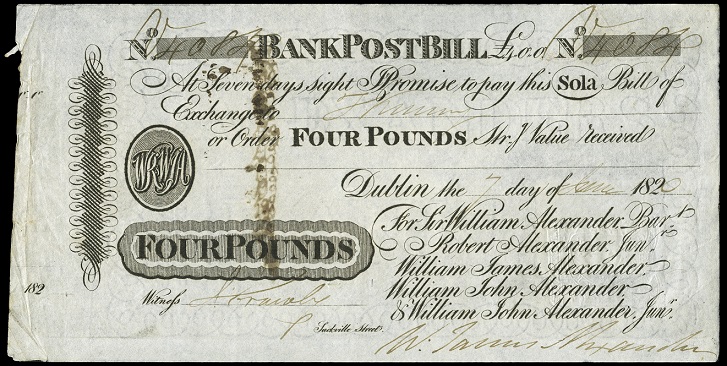 No. 4084 BANK POST BILL £4.0.0 No. 4084
At Seven days sight I Promise to pay this Sola Bill of
Exchange to
or Order FOUR POUNDS Str. Value received
Dublin the 7 day of 182
For Sir William Alexander, Bart.
Robert Alexander, Junr.
William James Alexander.
William John Alexander
& William John Alexander, Junr.
FOUR POUNDS
182
Witness
Sackville Street.
W. James Alexander